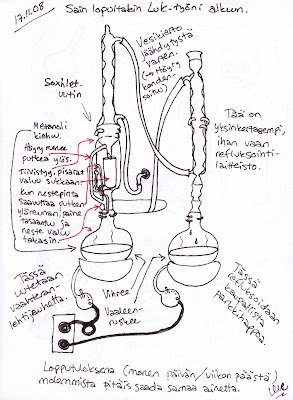 17.11.08
Sain lopultakin LuK-työni alkuun.
Vesikierto
jäähdytystä
varten.
(→ Höyry
konden-
soituu)
Soxhlet-
uutin
Metanoli
kiehuu.
Höyry menee
putkea ylös.
Tiivistyy, pisarat
valuu sukkaan.
Kun nestepinta
saavuttaa putken
yläreunan, paine
tasaantuu ja
neste valuu
takaisin.
Tää on
yksinkertasempi,
ihan vaan
refluksointi-
laitteisto.
Tässä
uutetaan
vaahteran-
lehtijauhetta.
Vihree
Vaaleen-
ruskee
Tässä
refluksoidaan
kaupallista
parkkihappoa.
Lopputuloksena (monen päivän/viikon päästä)
molemmista pitäis saada samaa ainetta.